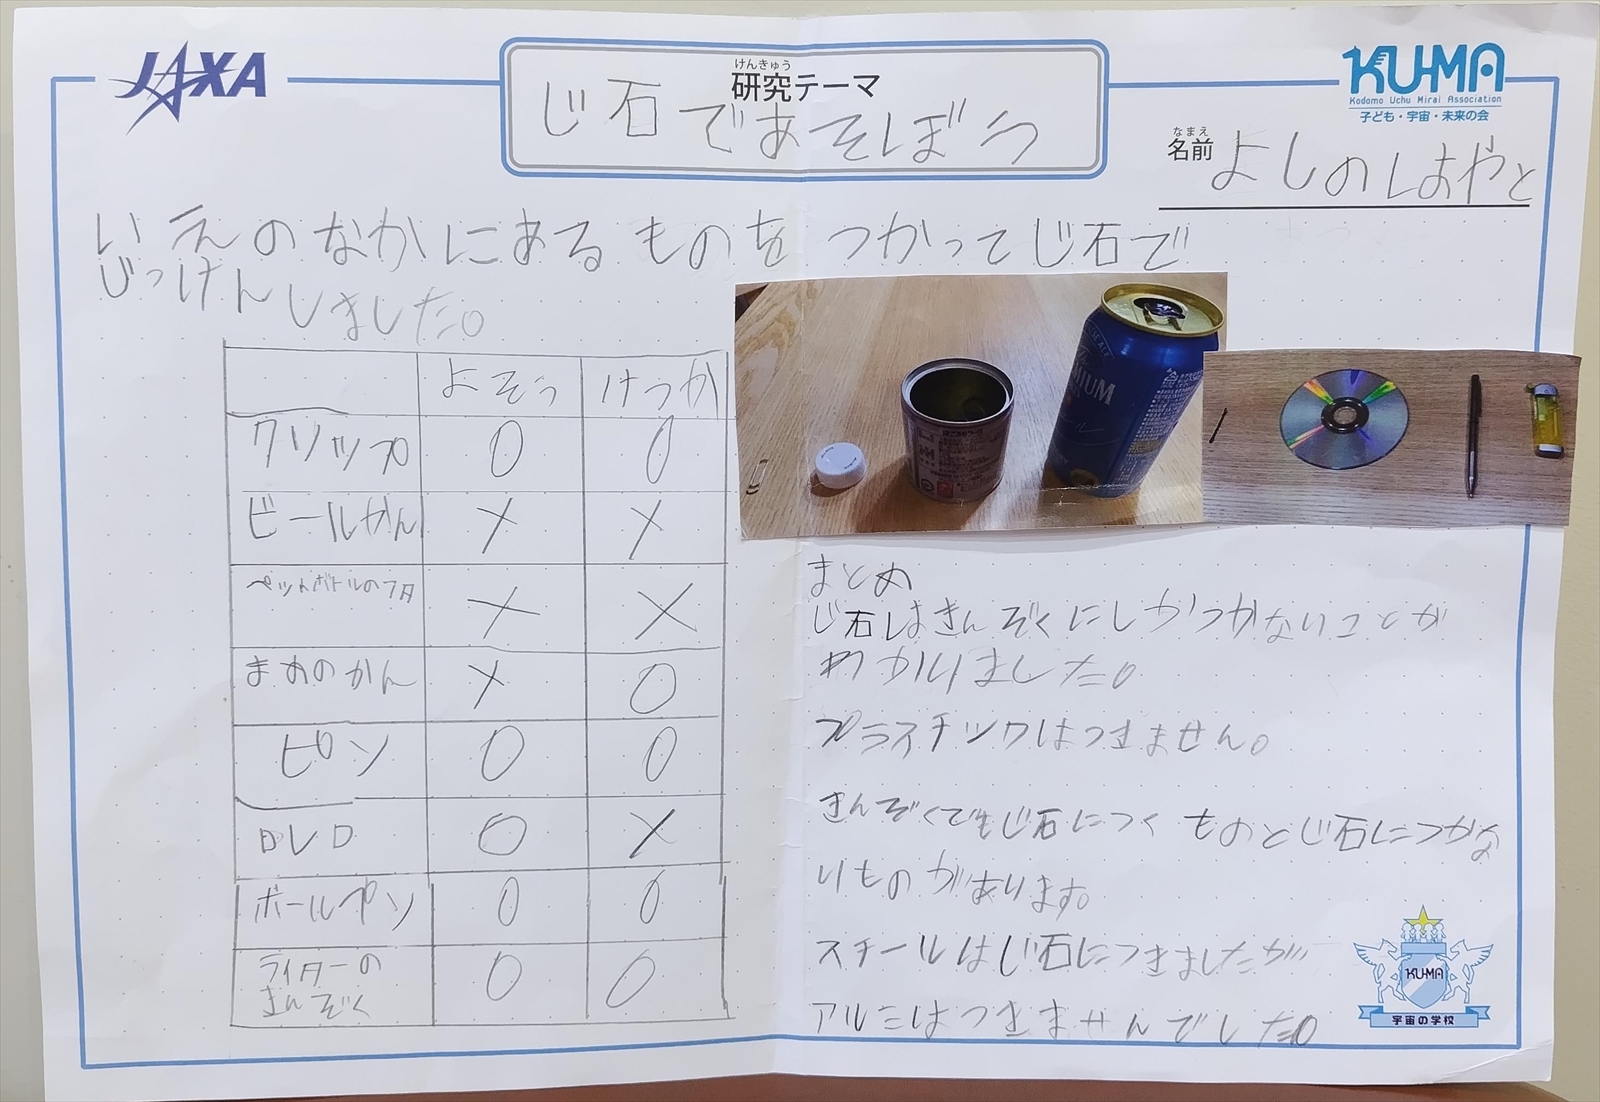 JAXA
けんきゅう
研究テーマ
じ石であそぼう
KU-MA
Kodomo Uchu Mirai Association
子ども・宇宙・未来の会
なまえ
名前 よしのはやと
いえのなかにあるものをつかってじ石で
じっけんしました。
よそう けっか
クリップ ○ ○
ビールかん × ×
ペットボトルのフタ × ×
まめのかん × ○
ピン ○ ○
DVD ○ ×
ボールペン ○ ○
ライターの
きんぞく ○ ○
まとめ
じ石はきんぞくにしかつかないことが
わかりました。
プラスチックはつきません。
きんぞくでもじ石につくものとじ石につかな
いものがあります。
スチールはじ石につきましたが
アルミはつきませんでした。
KU-MA
宇宙の学校